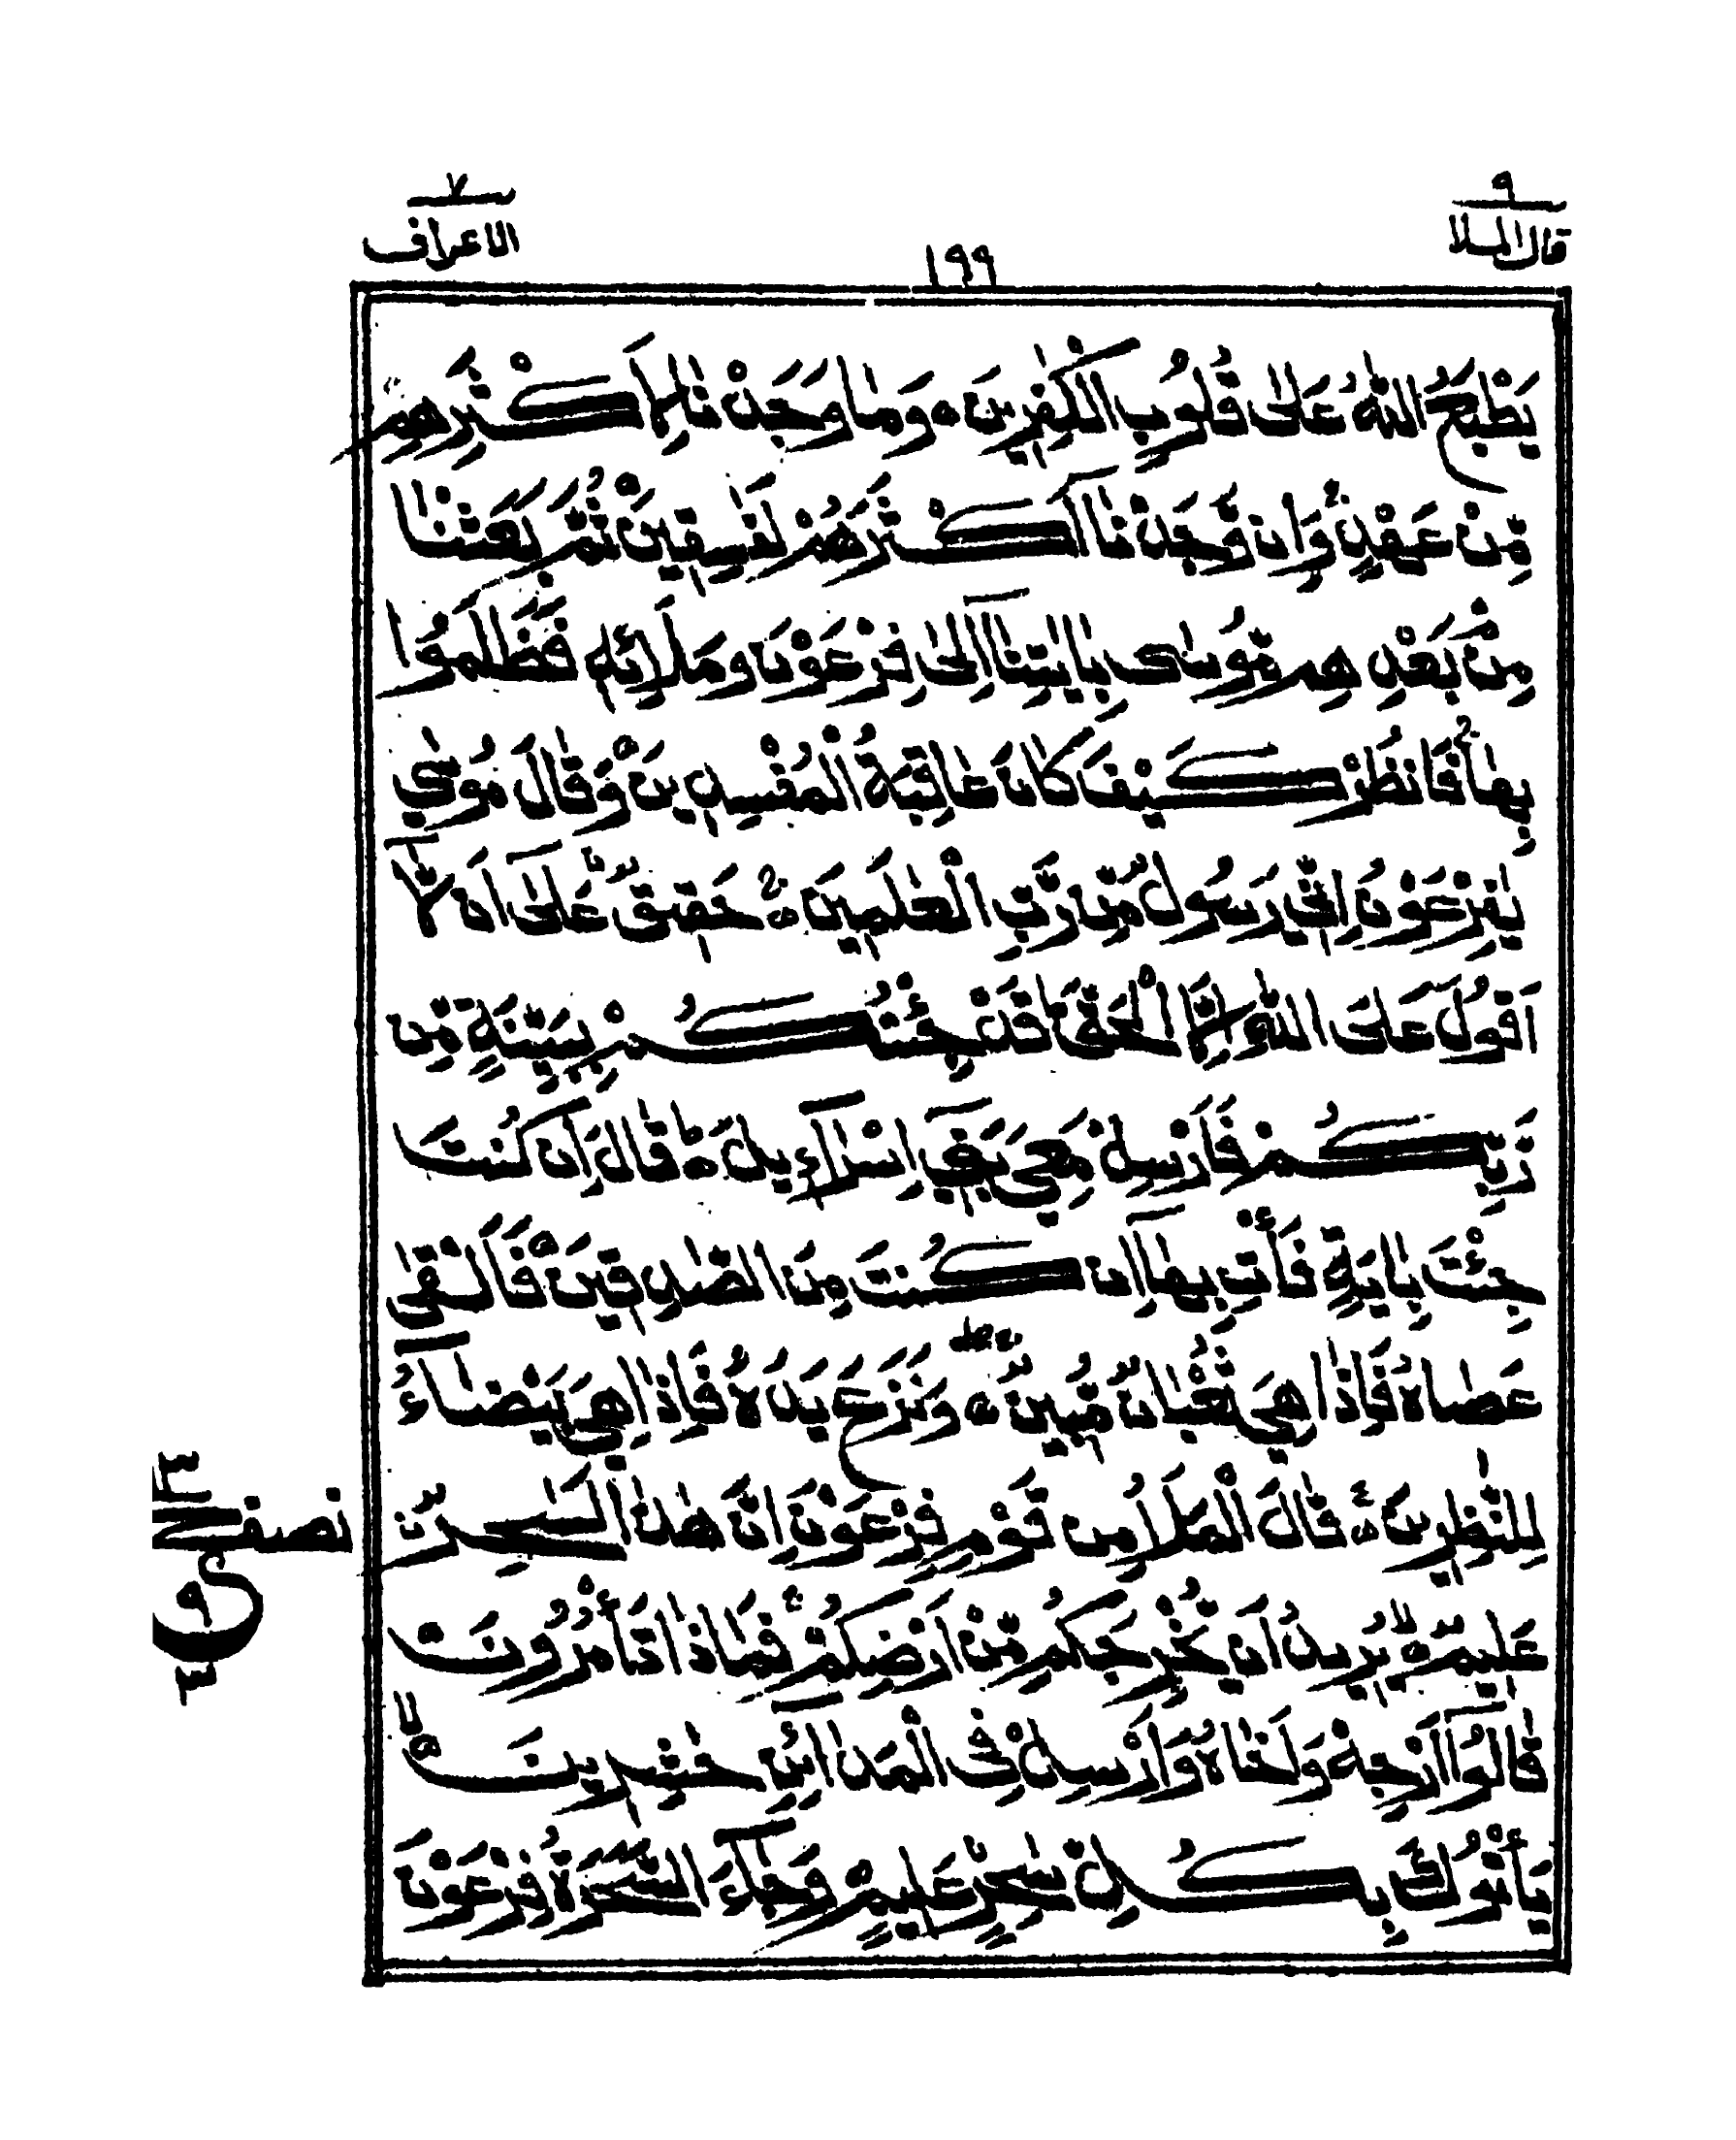 قال الملا ٩
١٩٩
الاعراف ٧
يَطْبَعُ اللّٰهُ عَلٰى قُلُوبِ الْكٰفِرِينَ ۝ وَمَا وَجَدْنَا لِأَكْثَرِهِمْ
مِّنْ عَهْدٍ ۚ وَإِنْ وَّجَدْنَآ أَكْثَرَهُمْ لَفٰسِقِينَ ۝ ثُمَّ بَعَثْنَا
مِنْۢ بَعْدِهِمْ مُّوسٰى بِاٰيٰتِنَآ اِلٰى فِرْعَوْنَ وَمَلَا۟ئِهٖ فَظَلَمُوا
بِهَا ۚ فَانْظُرْ كَيْفَ كَانَ عَاقِبَةُ الْمُفْسِدِينَ ۝ وَقَالَ مُوسٰى
يٰفِرْعَوْنُ اِنِّي رَسُولٌ مِّنْ رَّبِّ الْعٰلَمِينَ ۝ حَقِيقٌ عَلٰٓى اَنْ لَّآ
اَقُولَ عَلَى اللّٰهِ اِلَّا الْحَقَّ ۗ قَدْ جِئْتُكُمْ بِبَيِّنَةٍ مِّنْ
رَّبِّكُمْ فَاَرْسِلْ مَعِيَ بَنِيٓ اِسْرَآءِيلَ ۝ قَالَ اِنْ كُنْتَ
جِئْتَ بِاٰيَةٍ فَأْتِ بِهَآ اِنْ كُنْتَ مِنَ الصّٰدِقِينَ ۝ فَاَلْقٰى
عَصَاهُ فَاِذَا هِيَ ثُعْبَانٌ مُّبِينٌ ۝ وَّنَزَعَ يَدَهٗ فَاِذَا هِيَ بَيْضَآءُ
لِلنّٰظِرِينَ ۝ قَالَ الْمَلَأُ مِنْ قَوْمِ فِرْعَوْنَ اِنَّ هٰذَا لَسٰحِرٌ
عَلِيمٌ ۝ يُّرِيدُ اَنْ يُّخْرِجَكُمْ مِّنْ اَرْضِكُمْ ۚ فَمَاذَا تَأْمُرُونَ
۝ قَالُوٓا اَرْجِهْ وَاَخَاهُ وَاَرْسِلْ فِي الْمَدَآئِنِ حٰشِرِينَ ۝
يَأْتُوكَ بِكُلِّ سٰحِرٍ عَلِيمٍ ۝ وَجَآءَ السَّحَرَةُ فِرْعَوْنَ
نصف
٣
ع
٩
٣